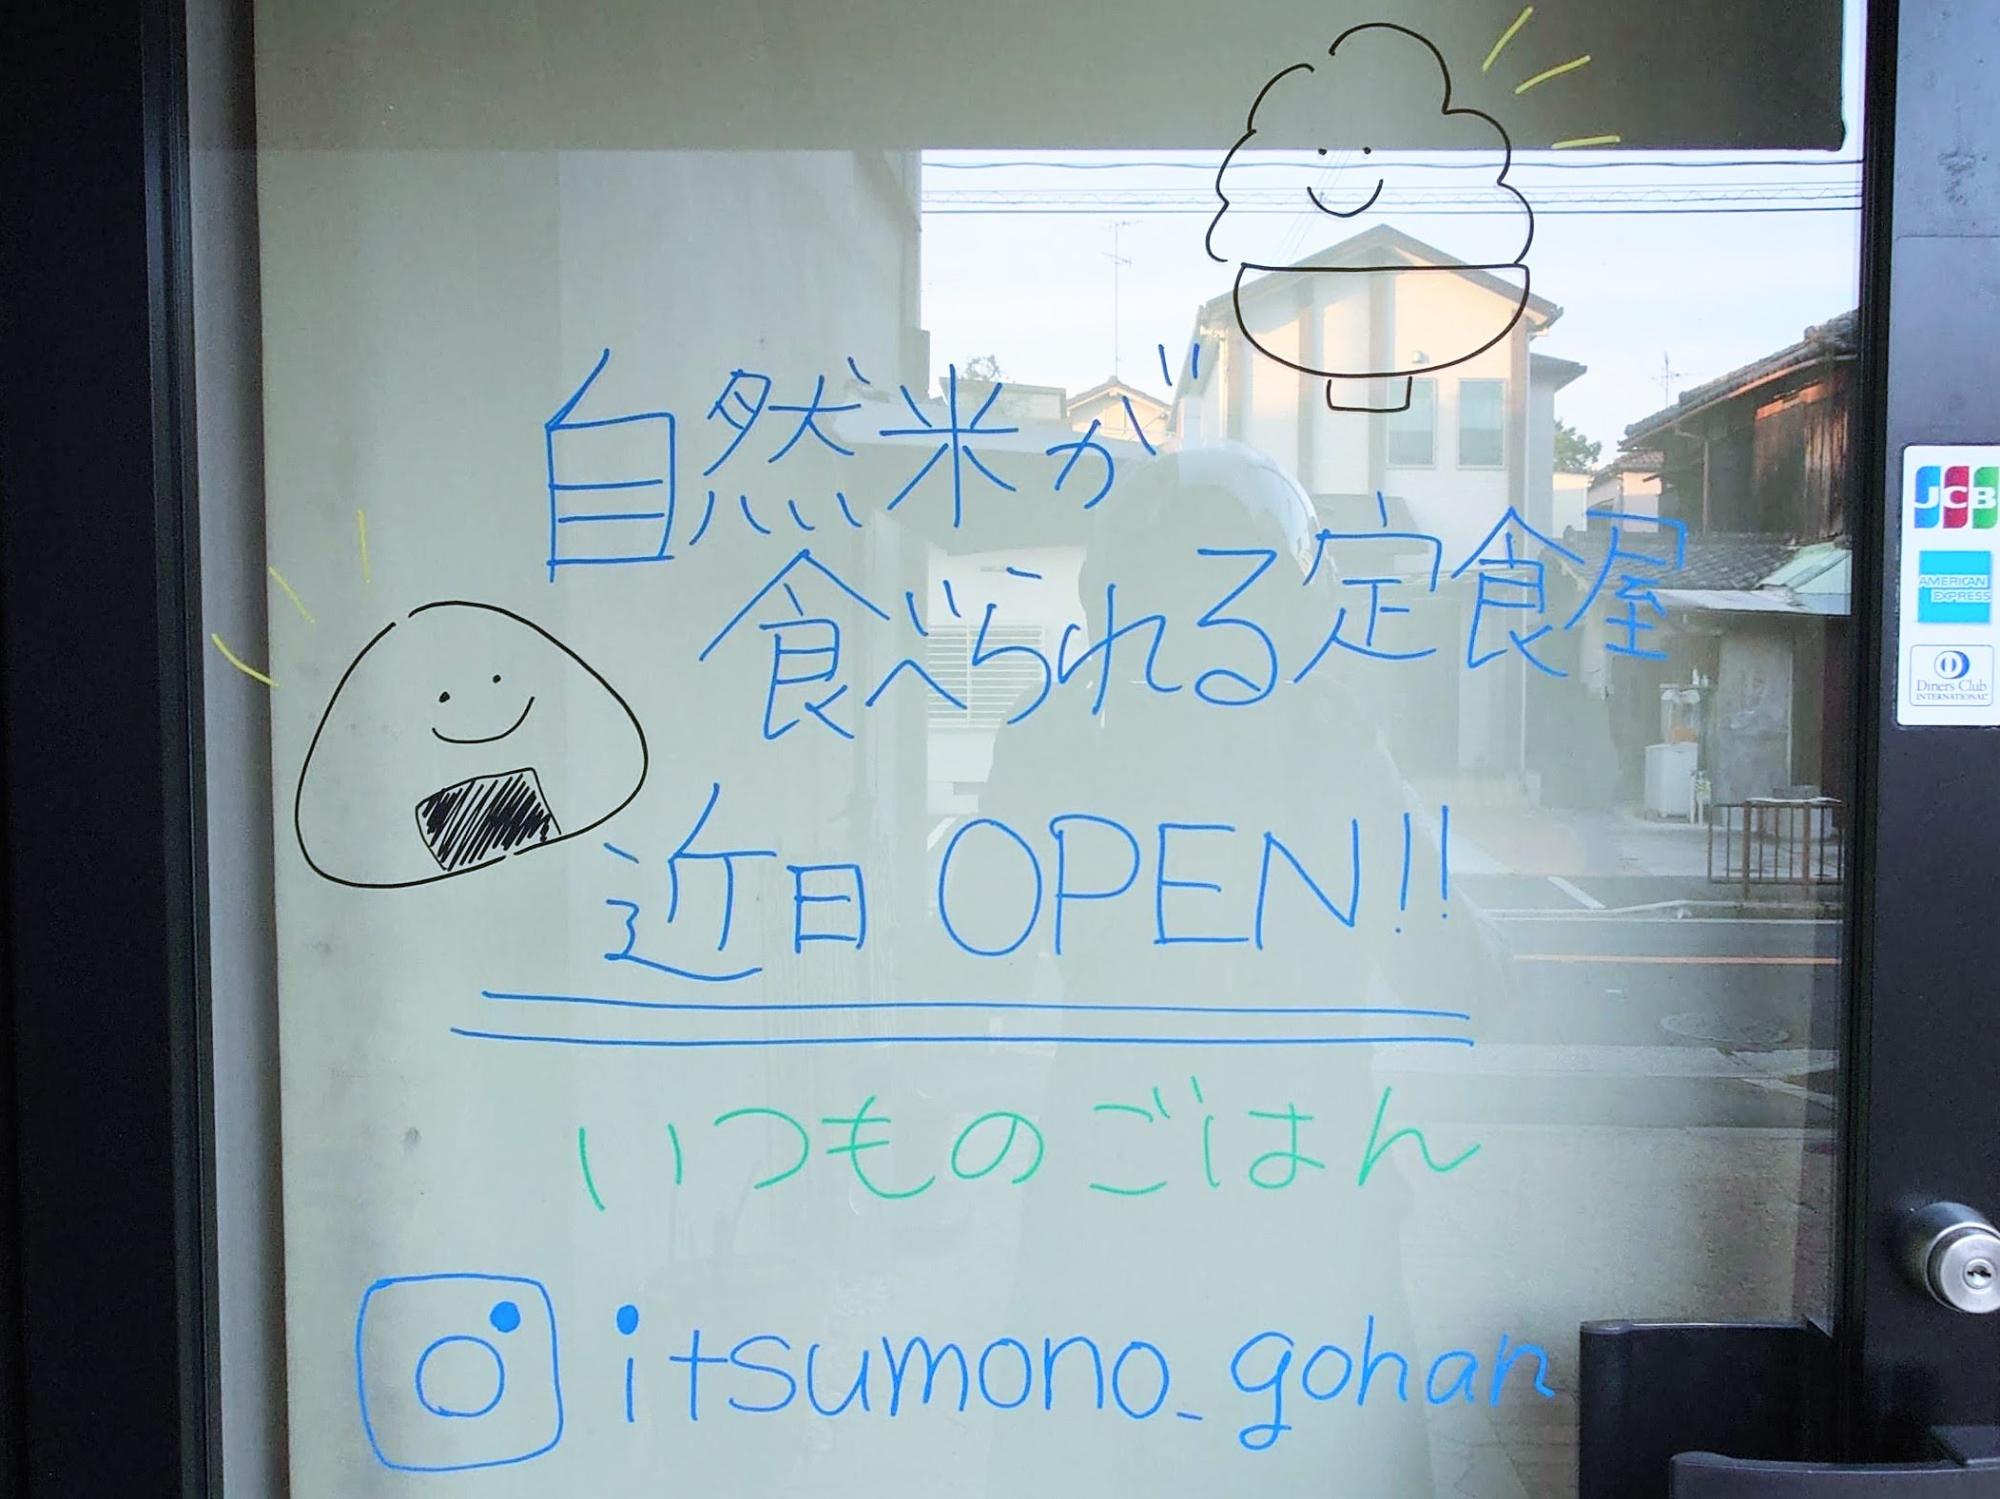 自然米が
食べられる定食屋
近日 OPEN!!
いつものごはん
itsumono_gohan
JCB
AMERICAN
EXPRESS
Diners Club
INTERNATIONAL